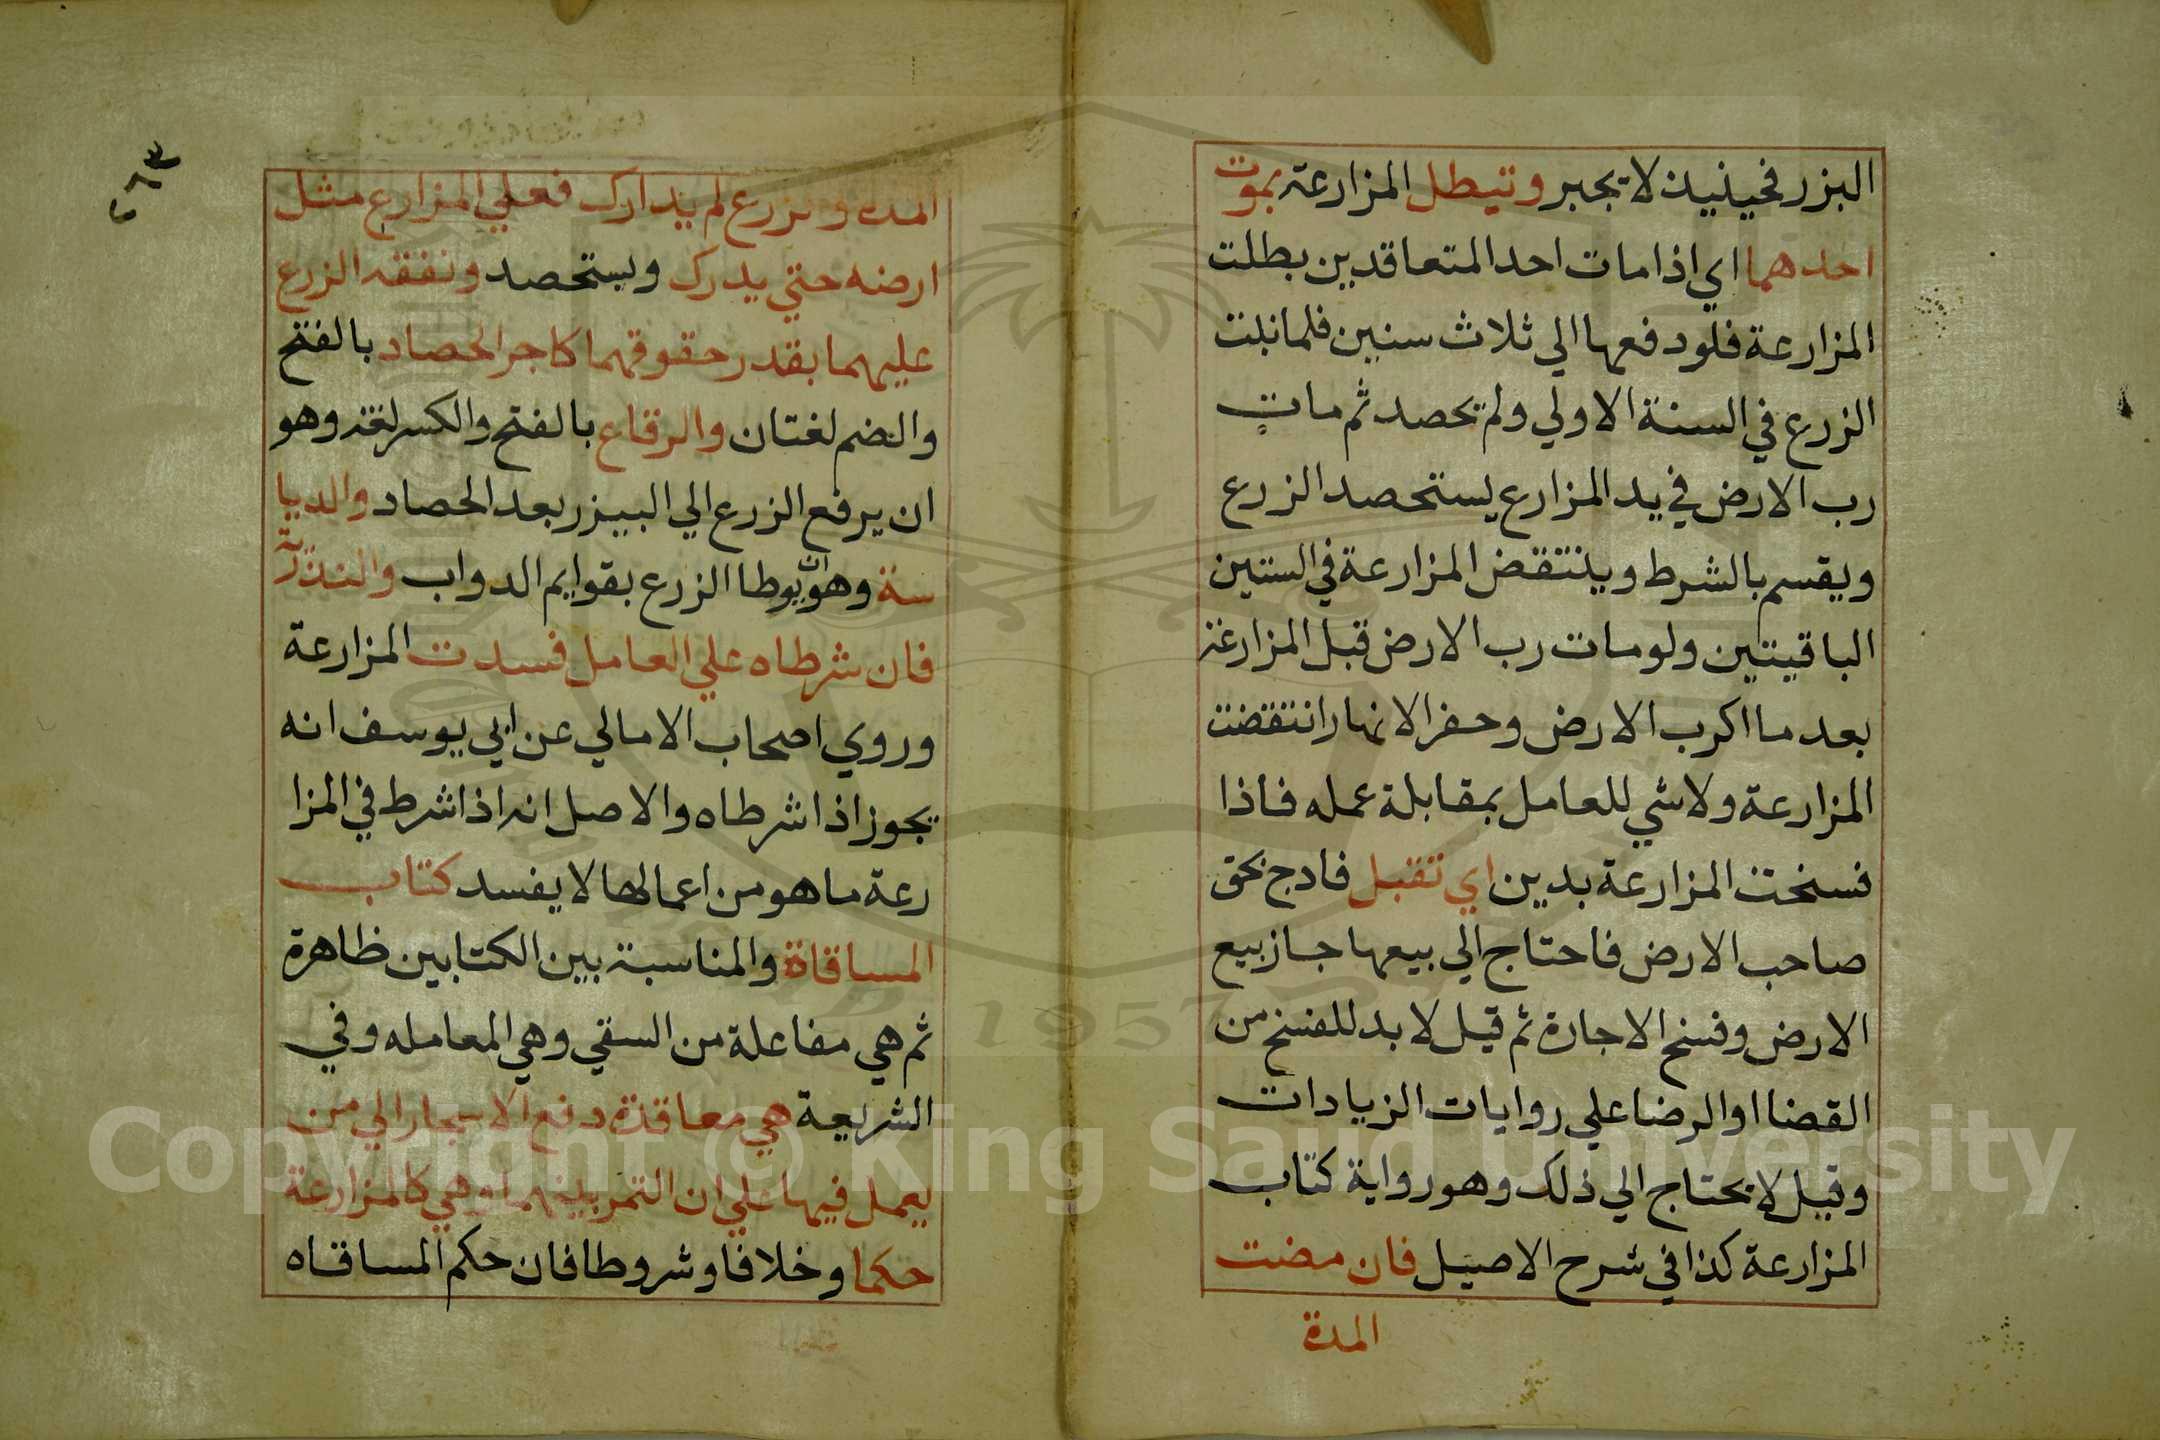 البزر فحينيذ لا يجبر وتبطل المزارعة بموت
احدهما اي اذا مات احد المتعاقدين بطلت
المزارعة فلو دفعها الي ثلاث سنين فلما نبت
الزرع في السنة الاولي ولم يحصد ثم مات
رب الارض في يد المزارع يستحصد الزرع
ويقسم بالشرط وينتقض المزارعة في السنتين
الباقيتين ولو مات رب الارض قبل المزارعة
بعد ما اكرب الارض وحفر الانهار انتقضت
المزارعة ولا شي للعامل بمقابلة عمله فاذا
فسخت المزارعة بدين اي تقبل فادح لحق
صاحب الارض فاحتاج الي بيعها جاز بيع
الارض وفسخ الاجارة ثم قيل لا بد للفسخ من
القضا او الرضا علي روايات الزيادات
وقيل لا يحتاج الي ذلك وهو رواية كتاب
المزارعة كذا في شرح الاصيل فان مضت
المدة
٢٦٣
المدة والزرع لم يدارك فعلي المزارع مثل
ارضه حتي يدرك ويستحصد ونفقه الزرع
عليهما بقدر حقوقهما كاجر الحصاد بالفتح
والضم لغتان والرقاع بالفتح والكسر لغة وهو
ان يرفع الزرع الي البيزر بعد الحصاد والديا
سة وهو ان يوطا الزرع بقوايم الدواب والتذرية
فان شرطاه علي العامل فسدت المزارعة
وروي اصحاب الامالي عن ابي يوسف انه
يجوز اذا شرطاه والاصل انه اذا شرط في المزا
رعة ما هو من اعمالها لا يفسد كتاب
المساقاة والمناسبة بين الكتابين ظاهرة
ثم هي مفاعلة من السقي وهي المعامله وفي
الشريعة هي معاقدة دفع الاشجار الي من
يعمل فيها علي ان الثمر بينهما وهي كالمزارعة
حكما وخلافا وشروطا فان حكم المساقاه
1957
Copyright © King Saud University